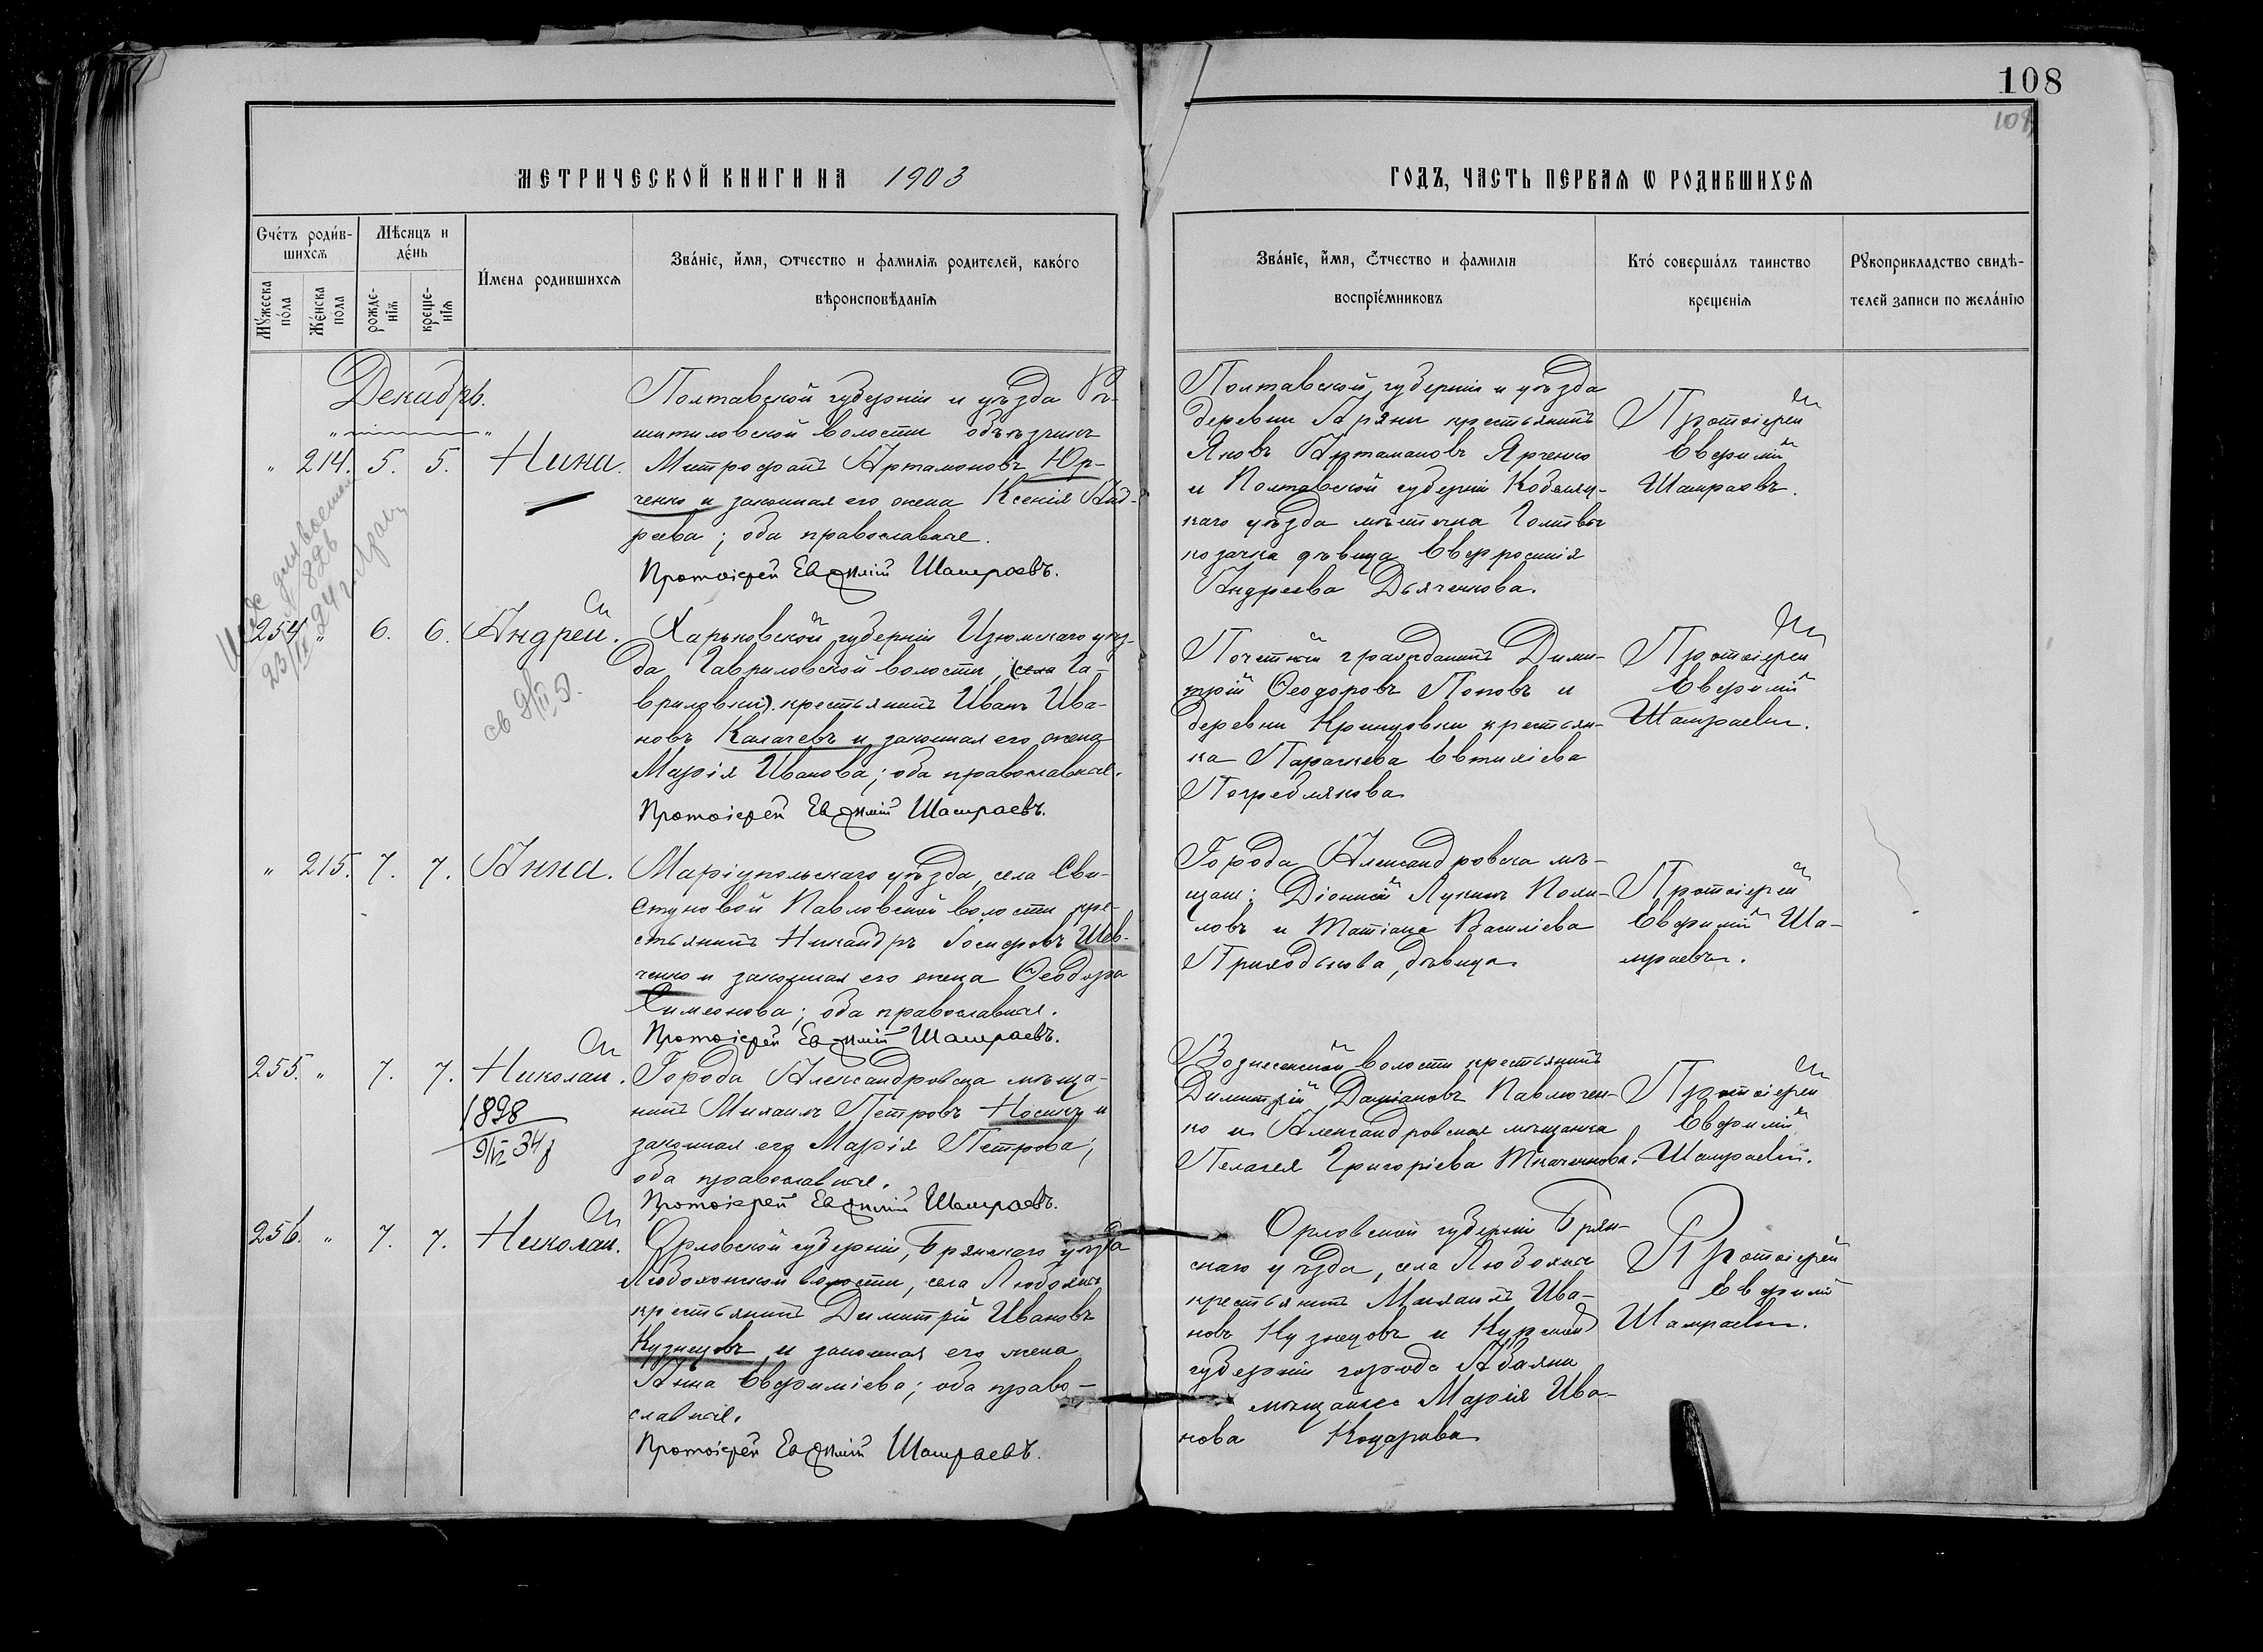 108
МЕТРИЧЕСКОЙ КНИГИ НА 1903
ГОДЪ, ЧАСТЬ ПЕРВАЯ Ѡ РОДИВШИХСЯ
Счётъ родив-
шихся
Мѣсяцъ и
день
Мужеска
пола
Женска
пола
рожде-
нія
креще-
нія
Имена родившихся
Званіе, имя, отчество и фамилія родителей, какого
вѣроисповѣданія
Званіе, имя, отчество и фамилія
воспріемниковъ
Кто совершалъ таинство
крещенія
Рукоприкладство свидѣ-
телей записи по желанію
Декабрь.
" 214. 5. 5. Нина.
Полтавской губерніи и уѣзда
шитиловской волости объѣзчикъ
Митрофанъ Артамоновъ Юр-
ченко и законная его жена Ксенія Анд-
реева; оба православные.
Протоіерей Евѳимій Шамраевъ.
Полтавской губерніи и уѣзда
деревни крестьянинъ
Яковъ Артамановъ Ярченко
и Полтавской губерніи Кобеляк-
каго уѣзда мѣстечка Голтвы
козачка дѣвица Евфросинія
Андреева Дьяченкова.
Протоіерей
Евфимій
Шамраевъ.
254 " 6. 6. Андрей.
Харьковской губерніи Изюмскаго уѣз-
да Гавриловской волости, (села Га-
вриловки) крестьянинъ Иванъ Ива-
новъ Калачевъ и законная его жена
Марія Иванова; оба православные.
Протоіерей Евѳимій Шамраевъ.
Почетный гражданинъ Дими-
трій Ѳеодоровъ Поповъ и
деревни Криндовки крестьян-
ка Параскева Евтихіева
Погреблякова
Протоіерей
Евфимій
Шамраевъ.
" 215. 7. 7. Анна.
Маріупольскаго уѣзда, села Сви-
стуновой Павловской волости кре-
стьянинъ Никандръ Іосифовъ Шев-
ченко и законная его жена Ѳеодора
Симеонова; оба православные.
Протоіерей Евѳимій Шамраевъ.
Города Александровска мѣ-
щане: Діонисій Лукинъ Поли-
ловъ и Татіана Василіева
Приходькова, дѣвица
Протоіерей
Евфимій Ша-
мраевъ.
255. " 7. 7. Николай.
1898
9/VI 34
Города Александровска мѣща-
нинъ Михаилъ Петровъ Носикъ и
законная его Марія Петрова;
оба православные.
Протоіерей Евѳимій Шамраевъ.
Вознесенской волости крестьянинъ
Димитрій Даміановъ Павлючен-
ко и Александровская мѣщанка
Пелагея Григоріева Ткаченкова.
Протоіерей
Евфимій
Шамраевъ.
256. " 7. 7. Николай.
Орловской губерніи, Брянскаго уѣзда
Любохонской волости, села Любохны
крестьянинъ Димитрій Ивановъ
Кузнецовъ и законная его жена
Анна Евфиміева; оба право-
славные.
Протоіерей Евѳимій Шамраевъ.
Орловской губерніи Брян-
скаго уѣзда, села Любохны
крестьянинъ Михаилъ Ива-
новъ Кузнецовъ и Курской
губерніи города Абояни
мѣщанка Марія Ива-
нова Коцарева
Протоіерей
Евфимій
Шамраевъ.